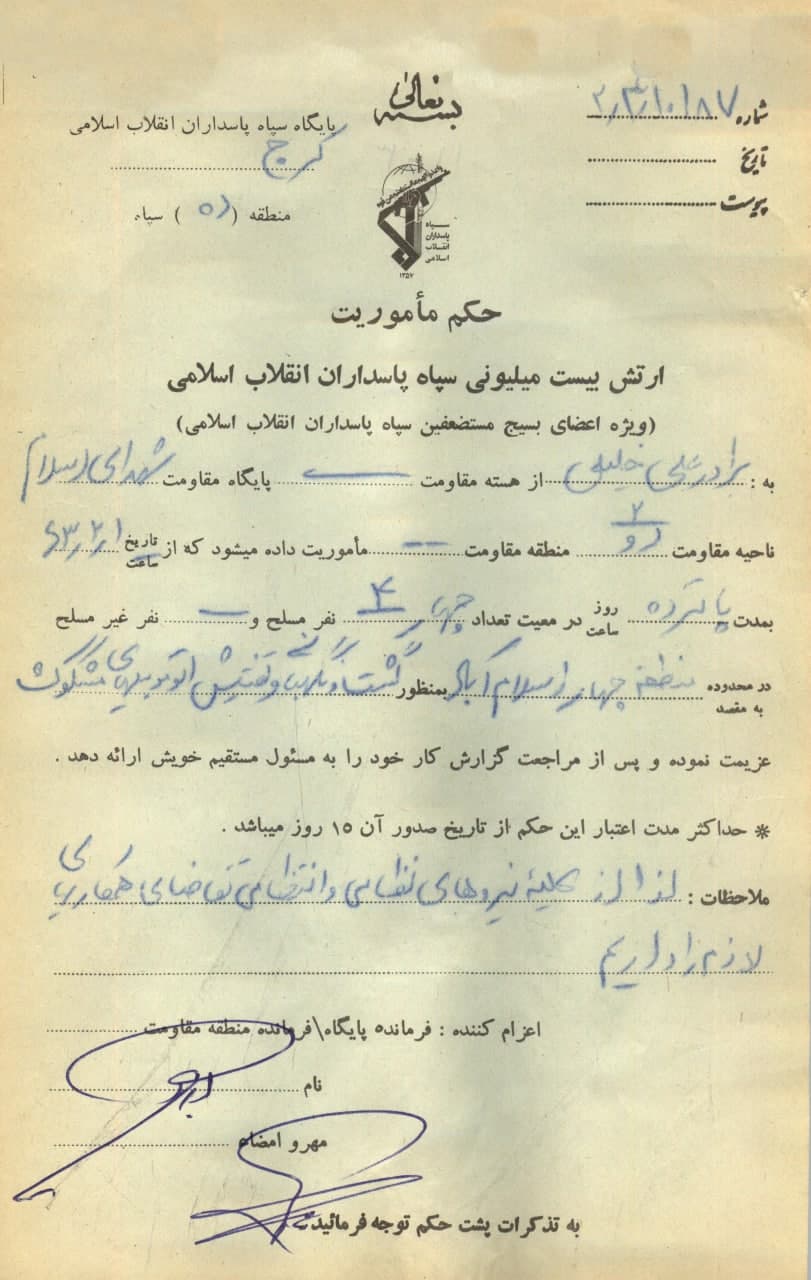 بسمه تعالی
شماره ۳/۳/۱۰۱۸۷
تاریخ
پیوست
پایگاه سپاه پاسداران انقلاب اسلامی
کرج
منطقه (۱۰) سپاه
سپاه
پاسداران
انقلاب
اسلامی
۱۳۵۷
حکم مأموریت
ارتش بیست میلیونی سپاه پاسداران انقلاب اسلامی
(ویژه اعضای بسیج مستضعفین سپاه پاسداران انقلاب اسلامی)
به : برادر علی خلیلی از هسته مقاومت — پایگاه مقاومت شهدای اسلام
ناحیه مقاومت ۲ دو منطقه مقاومت — مأموریت داده میشود که از تاریخ ساعت ۶۳/۲/۱
بمدت پانزده روز ساعت در معیت تعداد چهار ۴ نفر مسلح و — نفر غیر مسلح
در محدوده به مقصد منطقه چهار اسلام آباد بمنظور گشت و نگهبانی و تفتیش اتومبیلهای مشکوک
عزیمت نموده و پس از مراجعت گزارش کار خود را به مسئول مستقیم خویش ارائه دهد .
* حداکثر مدت اعتبار این حکم از تاریخ صدور آن ۱۵ روز میباشد .
ملاحظات : لذا از کلیه نیروهای نظامی و انتظامی تقاضای همکاریهای
لازم را داریم
اعزام کننده : فرمانده پایگاه\فرمانده منطقه مقاومت
نام
مهر و امضاء
به تذکرات پشت حکم توجه فرمائید